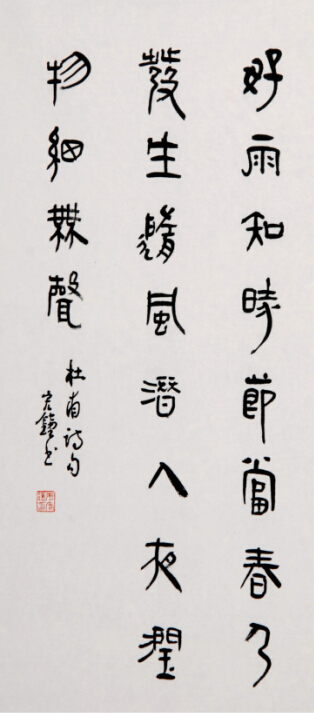 好雨知時節當春乃
發生隨風潛入夜潤
物細無聲
杜甫詩句